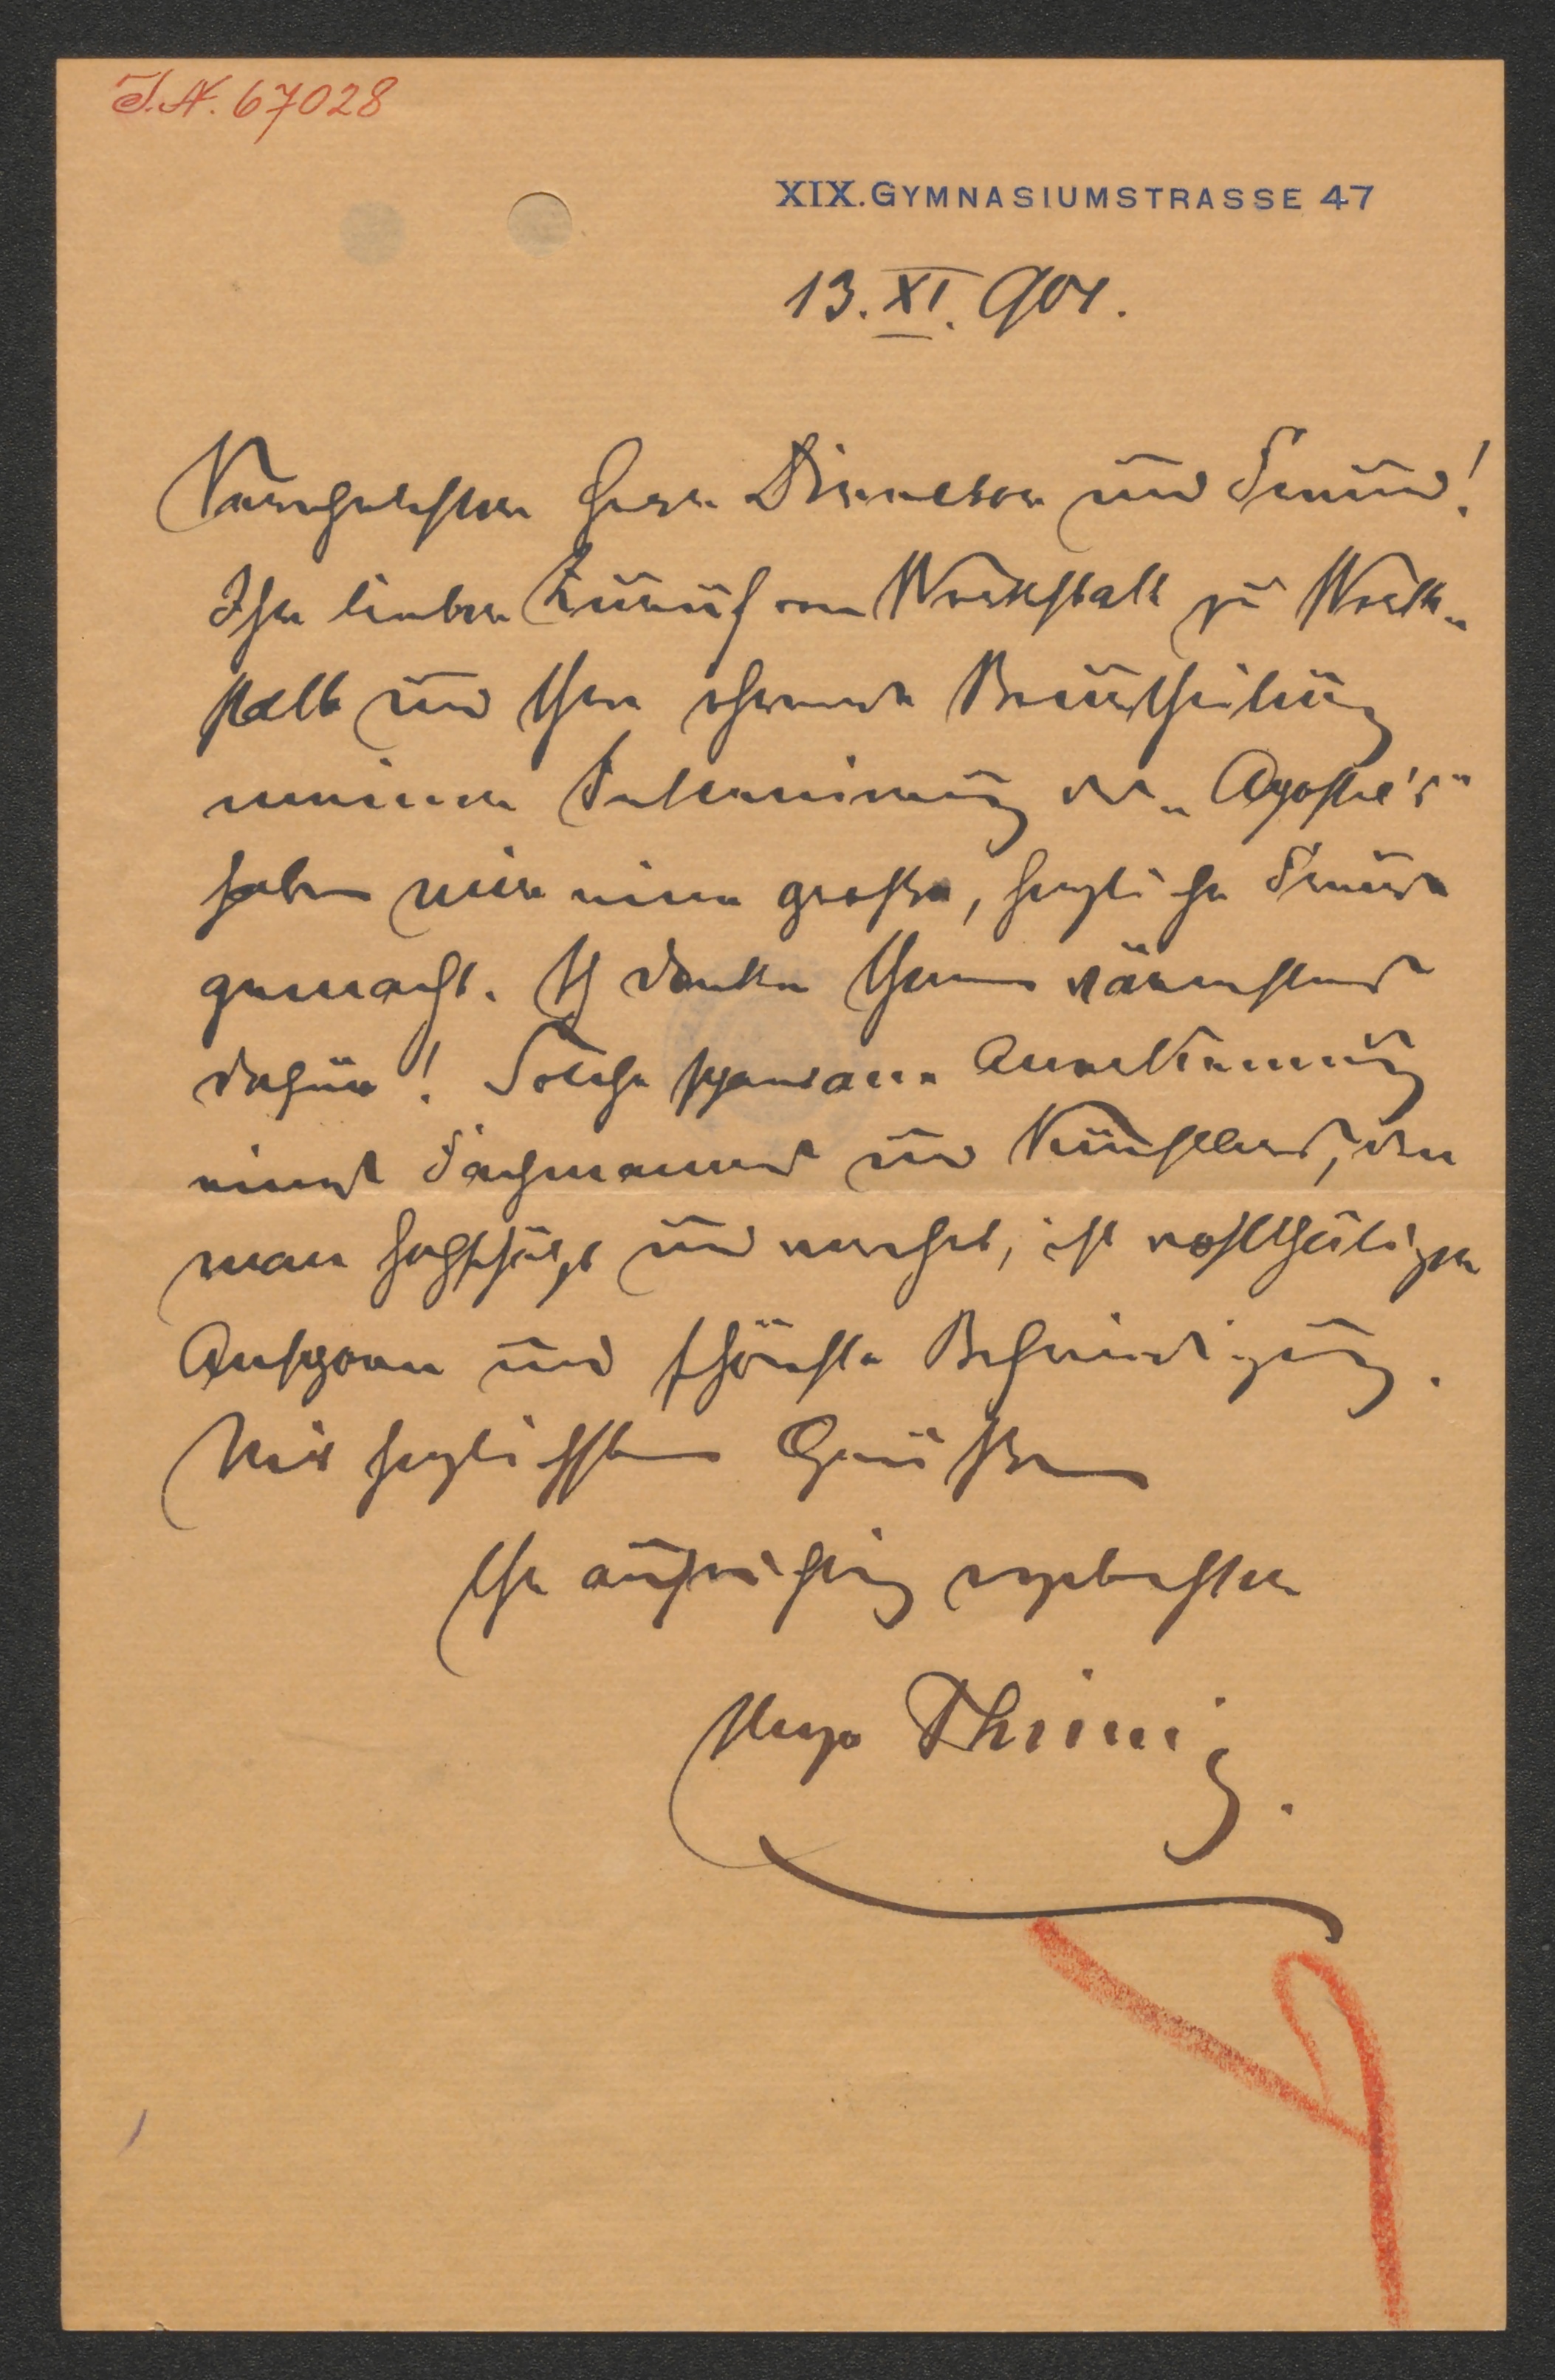 J.N. 67028
XIX. GYMNASIUMSTRASSE 47
13. XI. 901.
Verehrtester Herr Director und Freund!
Ihr lieber Zuruf von Werkstatt zu Werk-
statt und Ihre ehrende Beurtheilung
meiner Inscenirung des „Apostel's"
haben mir eine große, herzliche Freude
gemacht. Ich danke Ihnen wärmstens
dafür! Solche spontane Anerkennung
eines Fachmannes und Künstlers, den
man hochschätzt und verehrt, ist wohlthätiger
Ansporn und schönste Befriedigung.
Mit herzlichsten Grüßen
Ihr aufrichtig ergebenster
Hugo Thimig.